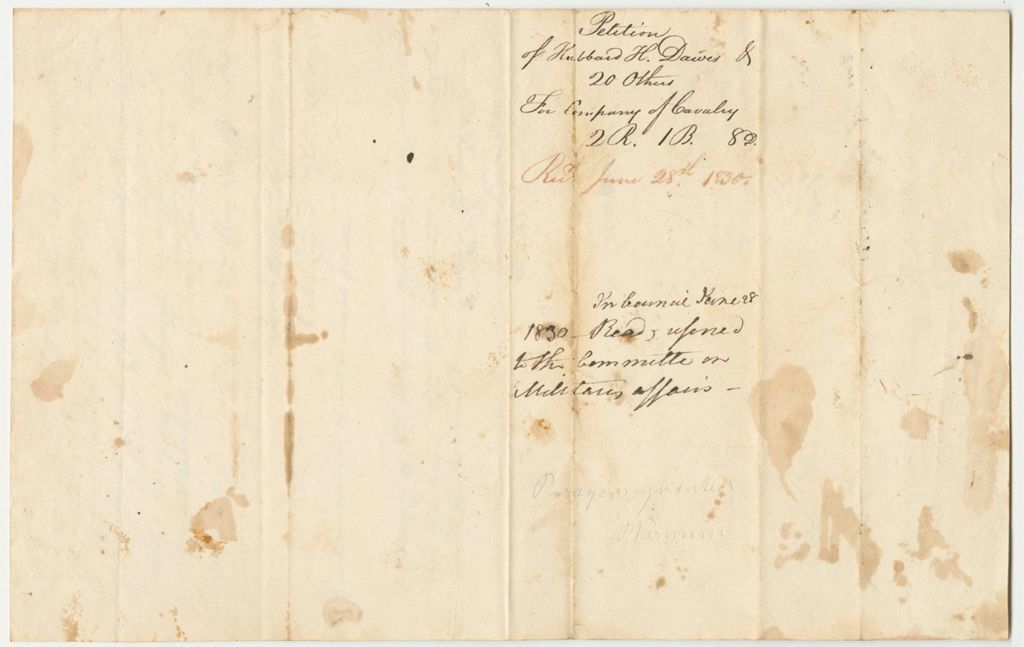 Petition
of Hubbard H. Dawes &
20 Others
For Company of Cavalry
2 R. 1 B. 8 D.
Recd. June 28th 1830.
In Council June 28
1830 - Read, referred
to the Committee on
Military affairs -
Prayer granted
P. Varnum